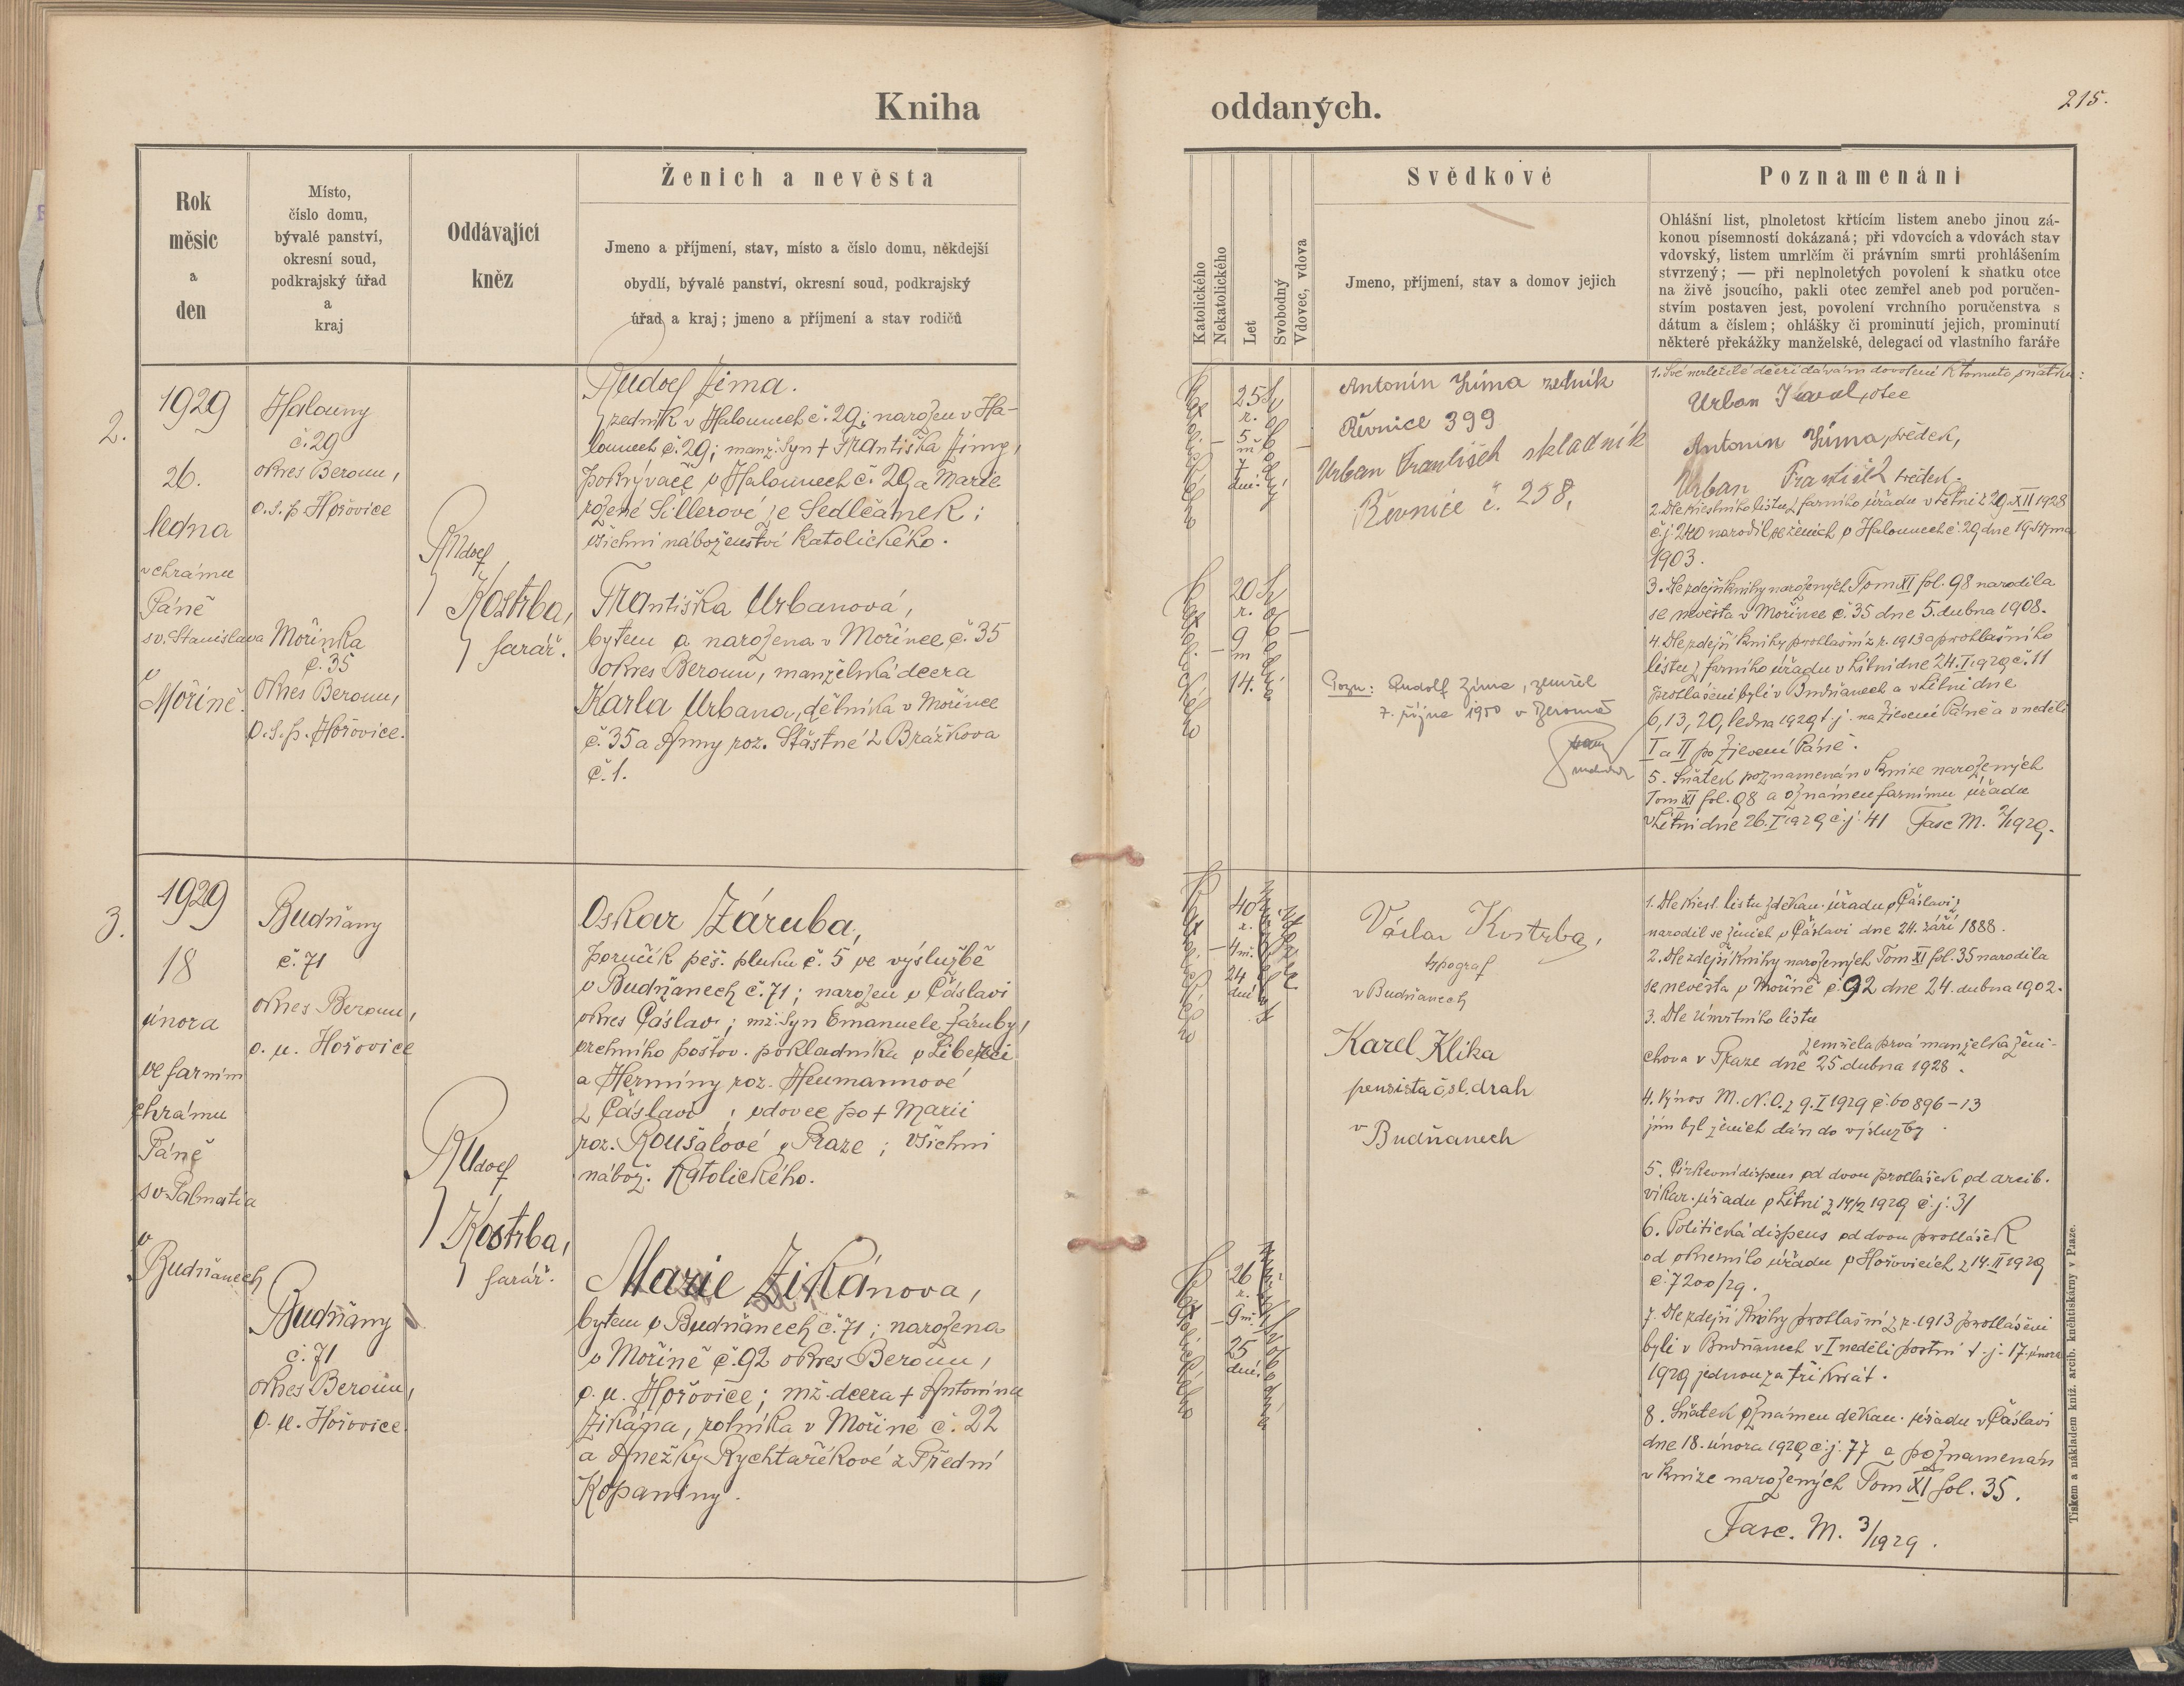 Kniha oddaných.
215.
Rok
měsíc
a
den
Místo,
číslo domu,
bývalé panství,
okresní soud,
podkrajský úřad
a
kraj
Oddávající
kněz
Ženich a nevěsta
Jmeno a příjmení, stav, místo a číslo domu, někdejší
obydlí, bývalé panství, okresní soud, podkrajský
úřad a kraj; jmeno a příjmení a stav rodičů
Katolického
Nekatolického
Let
Svobodný
Vdovec, vdova
Svědkové
Jmeno, příjmení, stav a domov jejich
Poznamenání
Ohlášní list, plnoletost křtícím listem anebo jinou zá-
konou písemností dokázaná; při vdovcích a vdovách stav
vdovský, listem umrlčím či právním smrti prohlášením
stvrzený; — při neplnoletých povolení k sňatku otce
na živě jsoucího, pakli otec zemřel aneb pod poručen-
stvím postaven jest, povolení vrchního poručenstva s
dátum a číslem; ohlášky či prominutí jejich, prominutí
některé překážky manželské, delegací od vlastního faráře
2.
1929
26.
ledna
v chrámu
Páně
sv. Stanislava
v
Mořině.
Halouny
č. 29
okres Beroun,
o.s.p. Hořovice
Mořinka
č. 35
Okres Beroun,
O.s.p. Hořovice.
Rudolf
Kostrba,
farář.
Rudolf Zima.
zedník v Halounech č. 29; narozen v Ha-
lounech č. 29; manž. syn + Františka Zimy,
pokrývače v Halounech č. 29 a Marie
rozené Sillerové ze Sedlčánek;
všichni náboženství katolického.
Františka Urbanová,
bytem a narozena v Mořince č. 35
okres Beroun, manželská dcera
Karla Urbana, dělníka v Mořince
č. 35 a Anny roz. Šťastné z Brážkova
č. 1.
katolického
25
r.
5
m
7
dní
svobodný
katolického
20
r.
9
m
14.
svobodná
Antonín Zima zedník
Řevnice 399
Urban František skladník
Řevnice č. 258,
Pozn: Rudolf Zima, zemřel
7. října 1950 v Berouně
1. Své nezletilé dceři dávám dovolení k tomuto sňatku:
Urban Karel, otec
Antonín Zima, svědek,
Urban František svědek.
2. Dle křestního listu z farního úřadu v Litni z 29. XII 1928
č. j. 240 narodil se ženich v Halounech č. 29 dne 19. srpna
1903.
3. Dle zdejší knihy narozených Tom XI fol. 98 narodila
se nevěsta v Mořince č. 35 dne 5. dubna 1908.
4. Dle zdejší knihy prohlašní z r. 1913 a prohlašního
listu z farního úřadu v Litni dne 24. I. 1929 č. 11
prohlášeni byli v Budňanech a v Litni dne
6, 13, 20, ledna 1929 t. j. na Zjevení Páně a v neděli
I a II po Zjevení Páně.
5. Sňatek poznamenán v knize narozených
Tom XI fol. 98 a oznámen farnímu úřadu
v Litni dne 26. I. 1929 č. j. 41 Fasc M. 2/1929.
3.
1929
18
února
ve farním
chrámu
Páně
sv. Palmatia
v
Budňanech
Budňany
č. 71
okres Beroun,
o. u. Hořovice
Budňany
č. 71
okres Beroun,
o. u. Hořovice
Rudolf
Kostrba,
farář.
Oskar Záruba,
poručík pěš. pluku č. 5 ve výslužbě
v Budňanech č. 71; narozen v Čáslavi
okres Čáslav; mž. syn Emanuele Záruby,
vrchního poštov. pokladníka v Liberci
a Hermíny roz. Heumannové
z Čáslavi; vdovec po + Marii
roz. Roušalové v Praze; všichni
nábož. katolického.
Marie Zikánova,
bytem v Budňanech č. 71; narozena
v Mořině č. 92 okres Beroun,
o. u. Hořovice; mž. dcera + Antonína
Zikána, rolníka v Mořině č. 22
a Anežky Rychtaříkové z Přední
Kopaniny.
katolického
40
r.
4 m.
24
dní
katolického
26
r.
9 m.
25
dní.
Václav Kostrba,
typograf
v Budňanech
Karel Klika
pensista čsl. drah
v Budňanech
1. Dle křest. listu z děkan. úřadu v Čáslavi,
narodil se ženich v Čáslavi dne 24. září 1888.
2. Dle zdejší knihy narozených Tom XI fol. 35 narodila
se nevěsta v Mořině č. 92 dne 24. dubna 1902.
3. Dle úmrtního listu
zemřela prvá manželka ženi-
chova v Praze dne 25 dubna 1928.
4. Výnos M. N. O. z 9. I 1929 č. 60896-13
jím byl ženich dán do výslužby.
5. Církevní dispens od dvou prohlášek od arcib.
vikar. úřadu v Litni z 14/2 1929 č. j. 31
6. Politická dispens od dvou prohlášek
od okresního úřadu v Hořovicích z 14. II 1929
č. 7200/29.
7. Dle zdejší knihy prohlašní z r. 1913 prohlášeni
byli v Budňanech v I neděli postní t. j. 17. února
1929 jednou za třikrát.
8. Sňatek oznámen děkan. úřadu v Čáslavi
dne 18. února 1929 č. j. 77 a poznamenán
v knize narozených Tom XI fol. 35.
Fasc. M. 3/1929.
Tiskem a nákladem kniž. arcib. knihtiskárny v Praze.